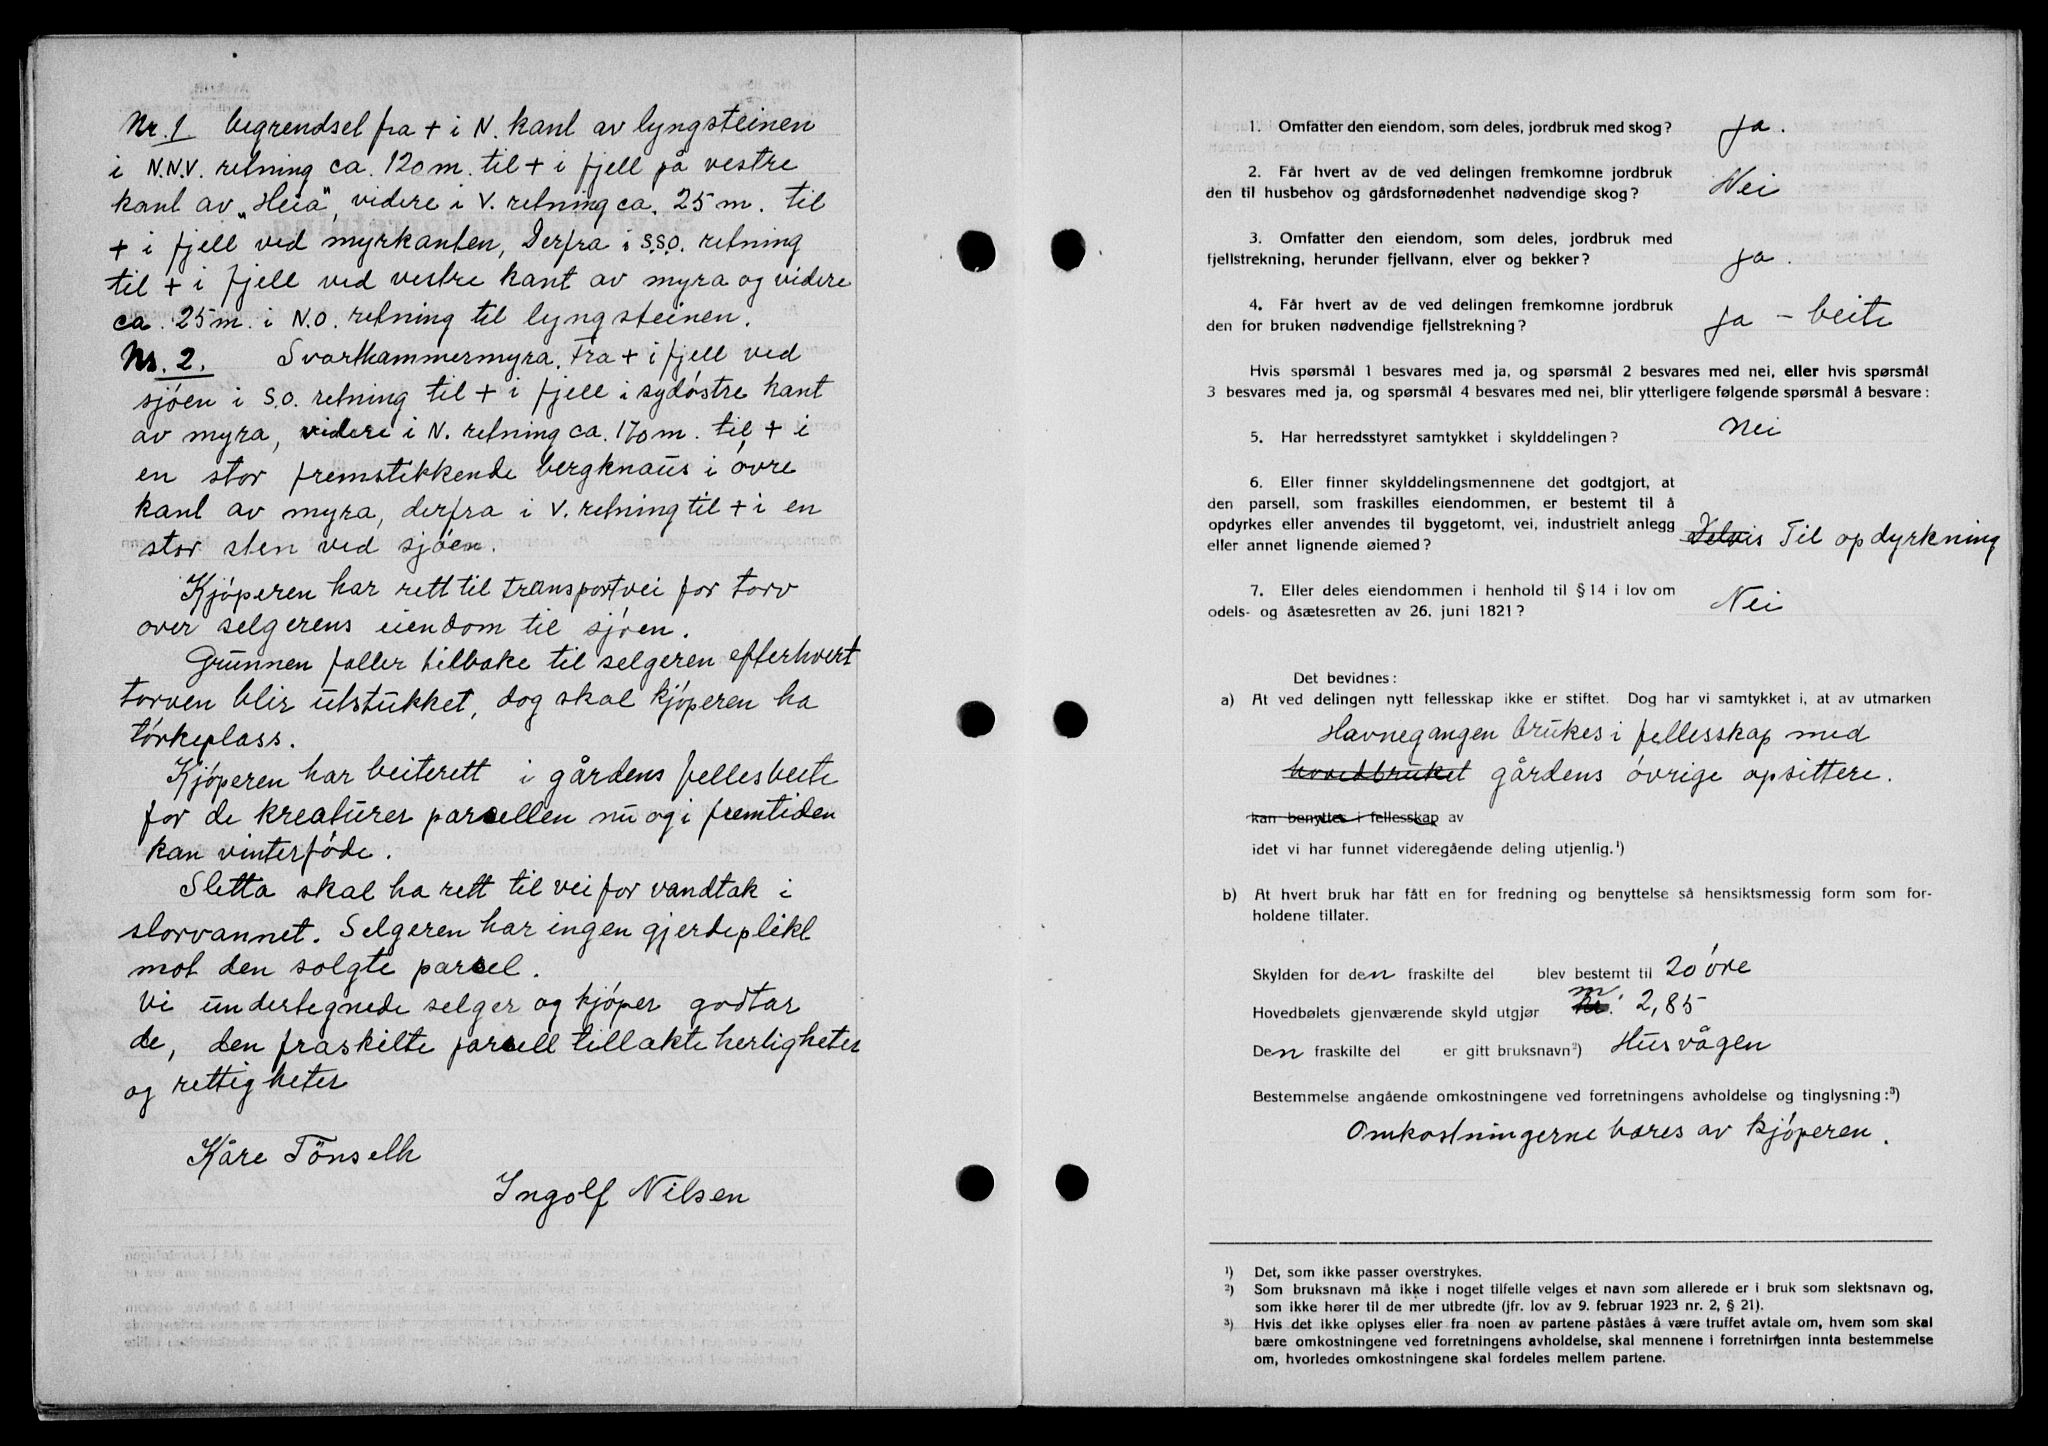 Nr. 1 begrendsel fra + i N. kant av lyngsteinen
i N.N.V. retning ca. 120 m. til + i fjell på vestre
kant av „Heia”, videre i V. retning ca. 25 m. til
+ i fjell ved myrkanten, Derfra i S.S.O. retning
til + i fjell ved vestre kant av myra og videre
ca. 25 m. i N.O. retning til lyngsteinen.
Nr. 2. Svarthammermyra. Fra + i fjell ved
sjøen i S.O. retning til + i fjell i sydøstre kant
av myra, videre i N. retning ca. 170 m. til + i
en stor fremstikkende bergknaus i øvre
kant av myra, derfra i V. retning til + i en
stor sten ved sjøen.
Kjøperen har rett til transportvei for torv
over selgerens eiendom til sjøen.
Grunnen faller tilbake til selgeren efterhvert
torven blir utstukket, dog skal kjøperen ha
tørkeplass.
Kjøperen har beiterett i gårdens fellesbeite
for de kreaturer parcellen nu og i fremtiden
kan vinterføde.
Sletta skal ha rett til vei for vandtak i
storvannet. Selgeren har ingen gjerdeplikt
mot den solgte parcel.
Vi undertegnede selger og kjøper godtar
de, den fraskilte parcell tillakte herligheter
og rettigheter
Kåre Tønseth
Ingolf Nilsen
1. Omfatter den eiendom, som deles, jordbruk med skog? Ja.
2. Får hvert av de ved delingen fremkomne jordbruk
den til husbehov og gårdsfornødenhet nødvendige skog? Nei
3. Omfatter den eiendom, som deles, jordbruk med
fjellstrekning, herunder fjellvann, elver og bekker? Ja.
4. Får hvert av de ved delingen fremkomne jordbruk
den for bruken nødvendige fjellstrekning? Ja – beite
Hvis spørsmål 1 besvares med ja, og spørsmål 2 besvares med nei, eller hvis spørsmål
3 besvares med ja, og spørsmål 4 besvares med nei, blir ytterligere følgende spørsmål å besvare:
5. Har herredsstyret samtykket i skylddelingen? Nei
6. Eller finner skylddelingsmennene det godtgjort, at
den parsell, som fraskilles eiendommen, er bestemt til å
opdyrkes eller anvendes til byggetomt, vei, industrielt anlegg
eller annet lignende øiemed? Delvis Til opdyrkning
7. Eller deles eiendommen i henhold til § 14 i lov om
odels- og åsætesretten av 26. juni 1821? Nei
Det bevidnes:
a) At ved delingen nytt fellesskap ikke er stiftet. Dog har vi samtykket i, at av utmarken
Havnegangen brukes i fellesskap med
hovedbruket gårdens øvrige opsittere.
kan benyttes i fellesskap av
idet vi har funnet videregående deling utjenlig.¹)
b) At hvert bruk har fått en for fredning og benyttelse så hensiktsmessig form som for-
holdene tillater.
Skylden for den fraskilte del blev bestemt til 20 øre
Hovedbølets gjenværende skyld utgjør kr. m 2,85
Den fraskilte del er gitt bruksnavn²) Husvågen
Bestemmelse angående omkostningene ved forretningens avholdelse og tinglysning:³)
Omkostningerne bæres av kjøperen.
¹) Det, som ikke passer overstrykes.
²) Som bruksnavn må ikke i noget tilfelle velges et navn som allerede er i bruk som slektsnavn og,
som ikke hører til de mer utbredte (jfr. lov av 9. februar 1923 nr. 2, § 21).
³) Hvis det ikke oplyses eller fra noen av partene påståes å være truffet avtale om, hvem som skal
bære omkostningene ved forretningens avholdelse, skal mennene i forretningen innta bestemmelse
om, hvorledes omkostningene skal fordeles mellem partene.